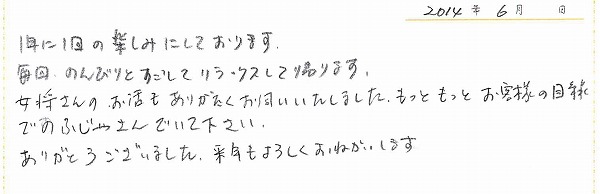 2014年 6月 日
1年に1回の楽しみにしております.
毎回 のんびりとすごしてリラックスして帰ります.
女将さんの お話も ありがたく お伺いいたしました.もっと もっと お客様の目線
であふじやさんでいて下さい.
ありがとうございました.来年もよろしくおねがいします